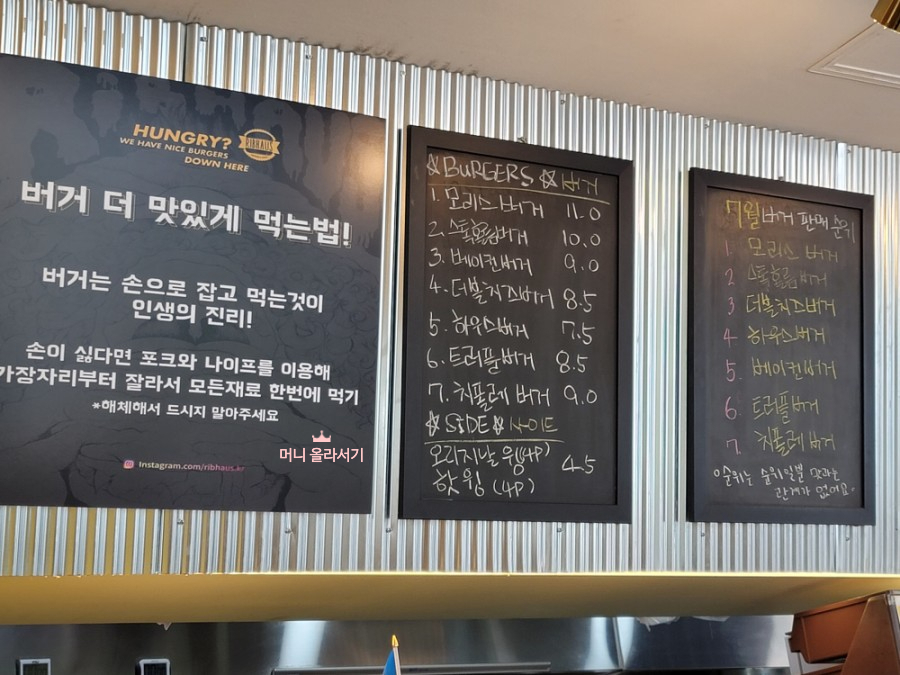 HUNGRY?
WE HAVE NICE BURGERS
DOWN HERE
RIBHAUS
버거 더 맛있게 먹는법!
버거는 손으로 잡고 먹는것이
인생의 진리!
손이 싫다면 포크와 나이프를 이용해
가장자리부터 잘라서 모든재료 한번에 먹기
*해체해서 드시지 말아주세요
Instagram.com/ribhaus.kr
머니 올라서기
☆BURGERS☆ 버거
1. 모리스 버거 11.0
2. 스톡홀름버거 10.0
3. 베이컨버거 9.0
4. 더블치즈버거 8.5
5. 하우스버거 7.5
6. 트러플버거 8.5
7. 치폴레 버거 9.0
☆SIDE☆ 사이드
오리지날 윙(4P) 4.5
핫 윙 (4P)
7월 버거 판매 순위
1. 모리스 버거
2 스톡홀름버거
3 더블치즈버거
4 하우스버거
5. 베이컨버거
6. 트러플버거
7. 치폴레 버거
순위는 순위일뿐 맛과는
관계가 없어요.